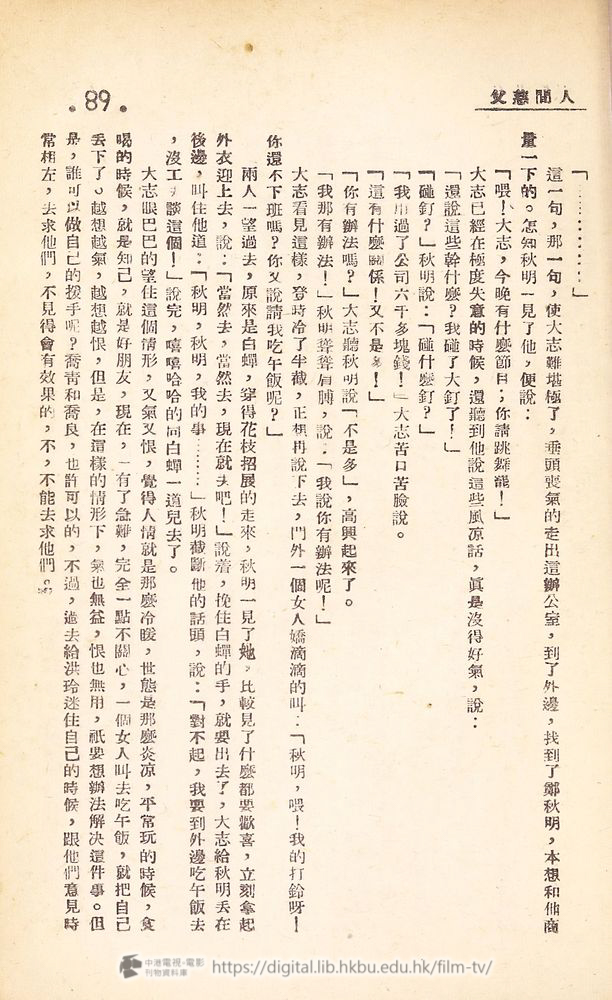 人間慈父
·89·
「………………」
這一句，那一句，使大志難堪極了，垂頭喪氣的走出這辦公室，到了外邊，找到了鄭秋明，本想和他商
量一下的。怎知秋明一見了他，便說：
「喂！大志，今晚有什麼節目；你請跳舞罷！」
大志已經在極度失意的時候，還聽到他說這些風凉話，眞是沒得好氣，說：
「還說這些幹什麼？我碰了大釘了！」
「碰釘？」秋明說：「碰什麼釘？」
「我用過了公司六千多塊錢！」大志苦口苦臉說。
「這有什麼關係！又不是多！」
「你有辦法嗎？」大志聽秋明說「不是多」，高興起來了。
「我那有辦法！」秋明聳聳肩膊，說：「我說你有辦法呢！」
大志看見這樣，登時冷了半截，正想再說下去，門外一個女人嬌滴滴的叫：「秋明，喂！我的打鈴呀！
你還不下班嗎？你又說請我吃午飯呢？」
兩人一望過去，原來是白蟬，穿得花枝招展的走來，秋明一見了她，比較見了什麼都要歡喜，立刻拿起
外衣迎上去，說：「當然去，當然去，現在就去吧！」說着，挽住白蟬的手，就要出去了，大志給秋明丢在
後邊，叫住他道：「秋明，秋明，我的事………」秋明截斷他的話頭，說：「對不起，我要到外邊吃午飯去
，沒工夫談這個！」說完，嘻嘻哈哈的同白蟬一道兒去了。
大志眼巴巴的望住這個情形，又氣又恨，覺得人情就是那麼冷暖，世態是那麼炎凉，平常玩的時候，食
喝的時候，就是知己，就是好朋友，現在，一有了急難，完全一點不關心，一個女人叫去吃午飯，就把自己
丢下了。越想越氣，越想越恨，但是，在這樣的情形下，氣也無益，恨也無用，祇要想辦法解决這件事。但
是，誰可以做自己的援手呢？喬靑和喬良，也許可以的，不過，過去給洪玲迷住自己的時候，跟他們意見時
常相左，去求他們，不見得會有效果的，不，不能去求他們。
中港電視·電影
刊物資料庫
https://digital.lib.hkbu.edu.hk/film-tv/